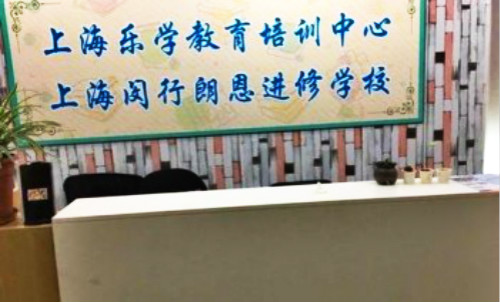 上海乐学教育培训中心
上海闵行朗恩进修学校